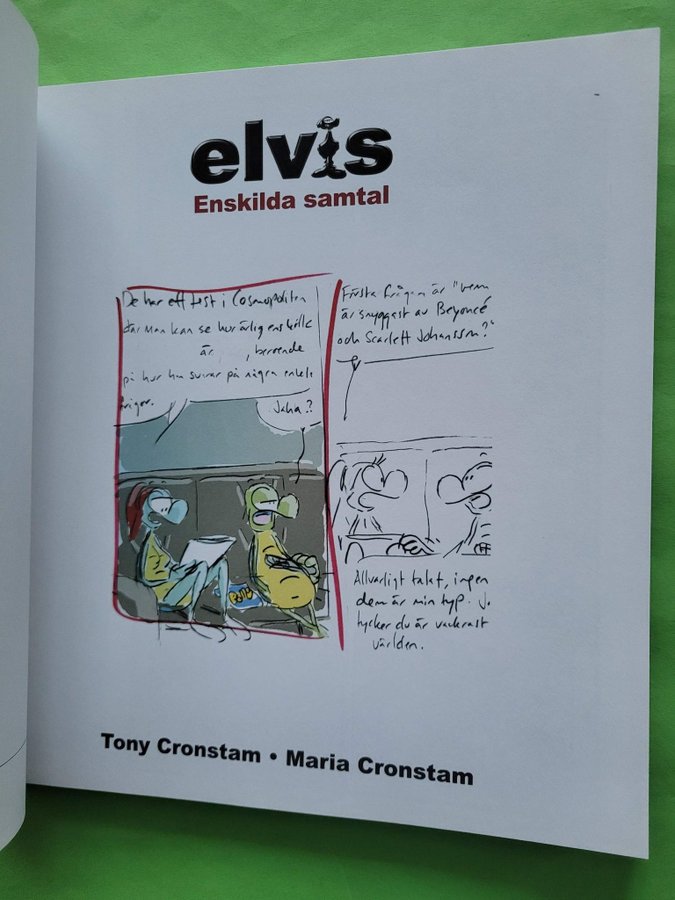 elvis
Enskilda samtal
De har ett test i Cosmopolitan
där man kan se hur ärlig ens kille
är , beroende
på hur han svarar på några enkla
frågor.
Jaha?
Första frågan är "vem
är snyggast av Beyoncé
och Scarlett Johansson?"
Allvarligt talat, ingen
dem är min typ. J
tycker du är vackrast
världen.
Tony Cronstam • Maria Cronstam